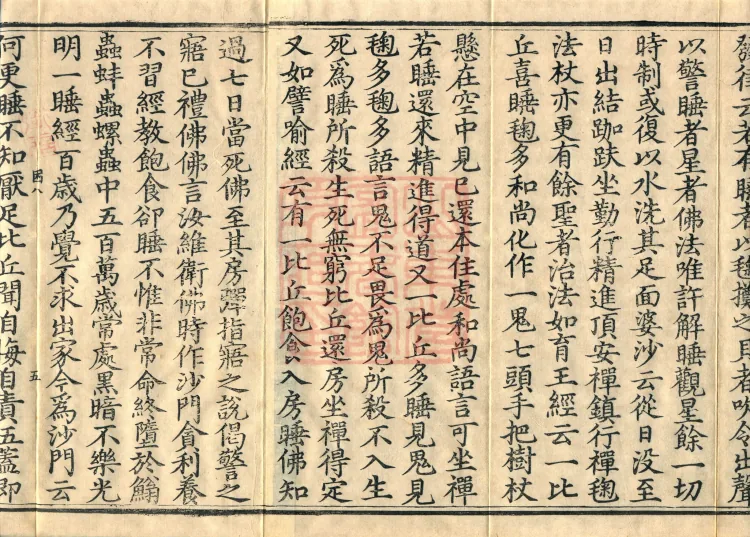 發律云若有睡者以毱擲之貝者吹令出聲
以警睡者星者佛法唯許解睡觀星餘一切
時制或復以水洗其足面婆沙云從日没至
日出結跏趺坐勤行精進頂安禪鎮行禪毱
法杖亦更有餘聖者治法如育王經云一比
丘喜睡毱多和尚化作一鬼七頭手把樹杖
懸在空中見已還本住處和尚語言可坐禪
若睡還來精進得道又一比丘多睡見鬼見
毱多毱多語言鬼不足畏為鬼所殺不入生
死為睡所殺生死無窮比丘還房坐禪得定
又如譬喻經云有一比丘飽食入房睡佛知
過七日當死佛至其房彈指寤之說偈警之
寤已禮佛佛言汝維衛佛時作沙門貪利養
不習經教飽食卻睡不惟非常命終墮於螉
蟲蚌蟲螺蟲中五百萬歲常處黑暗不樂光
明一睡經百歲乃覺不求出家今為沙門云
因八
五
何更睡不知厭足比丘聞自悔自責五蓋即